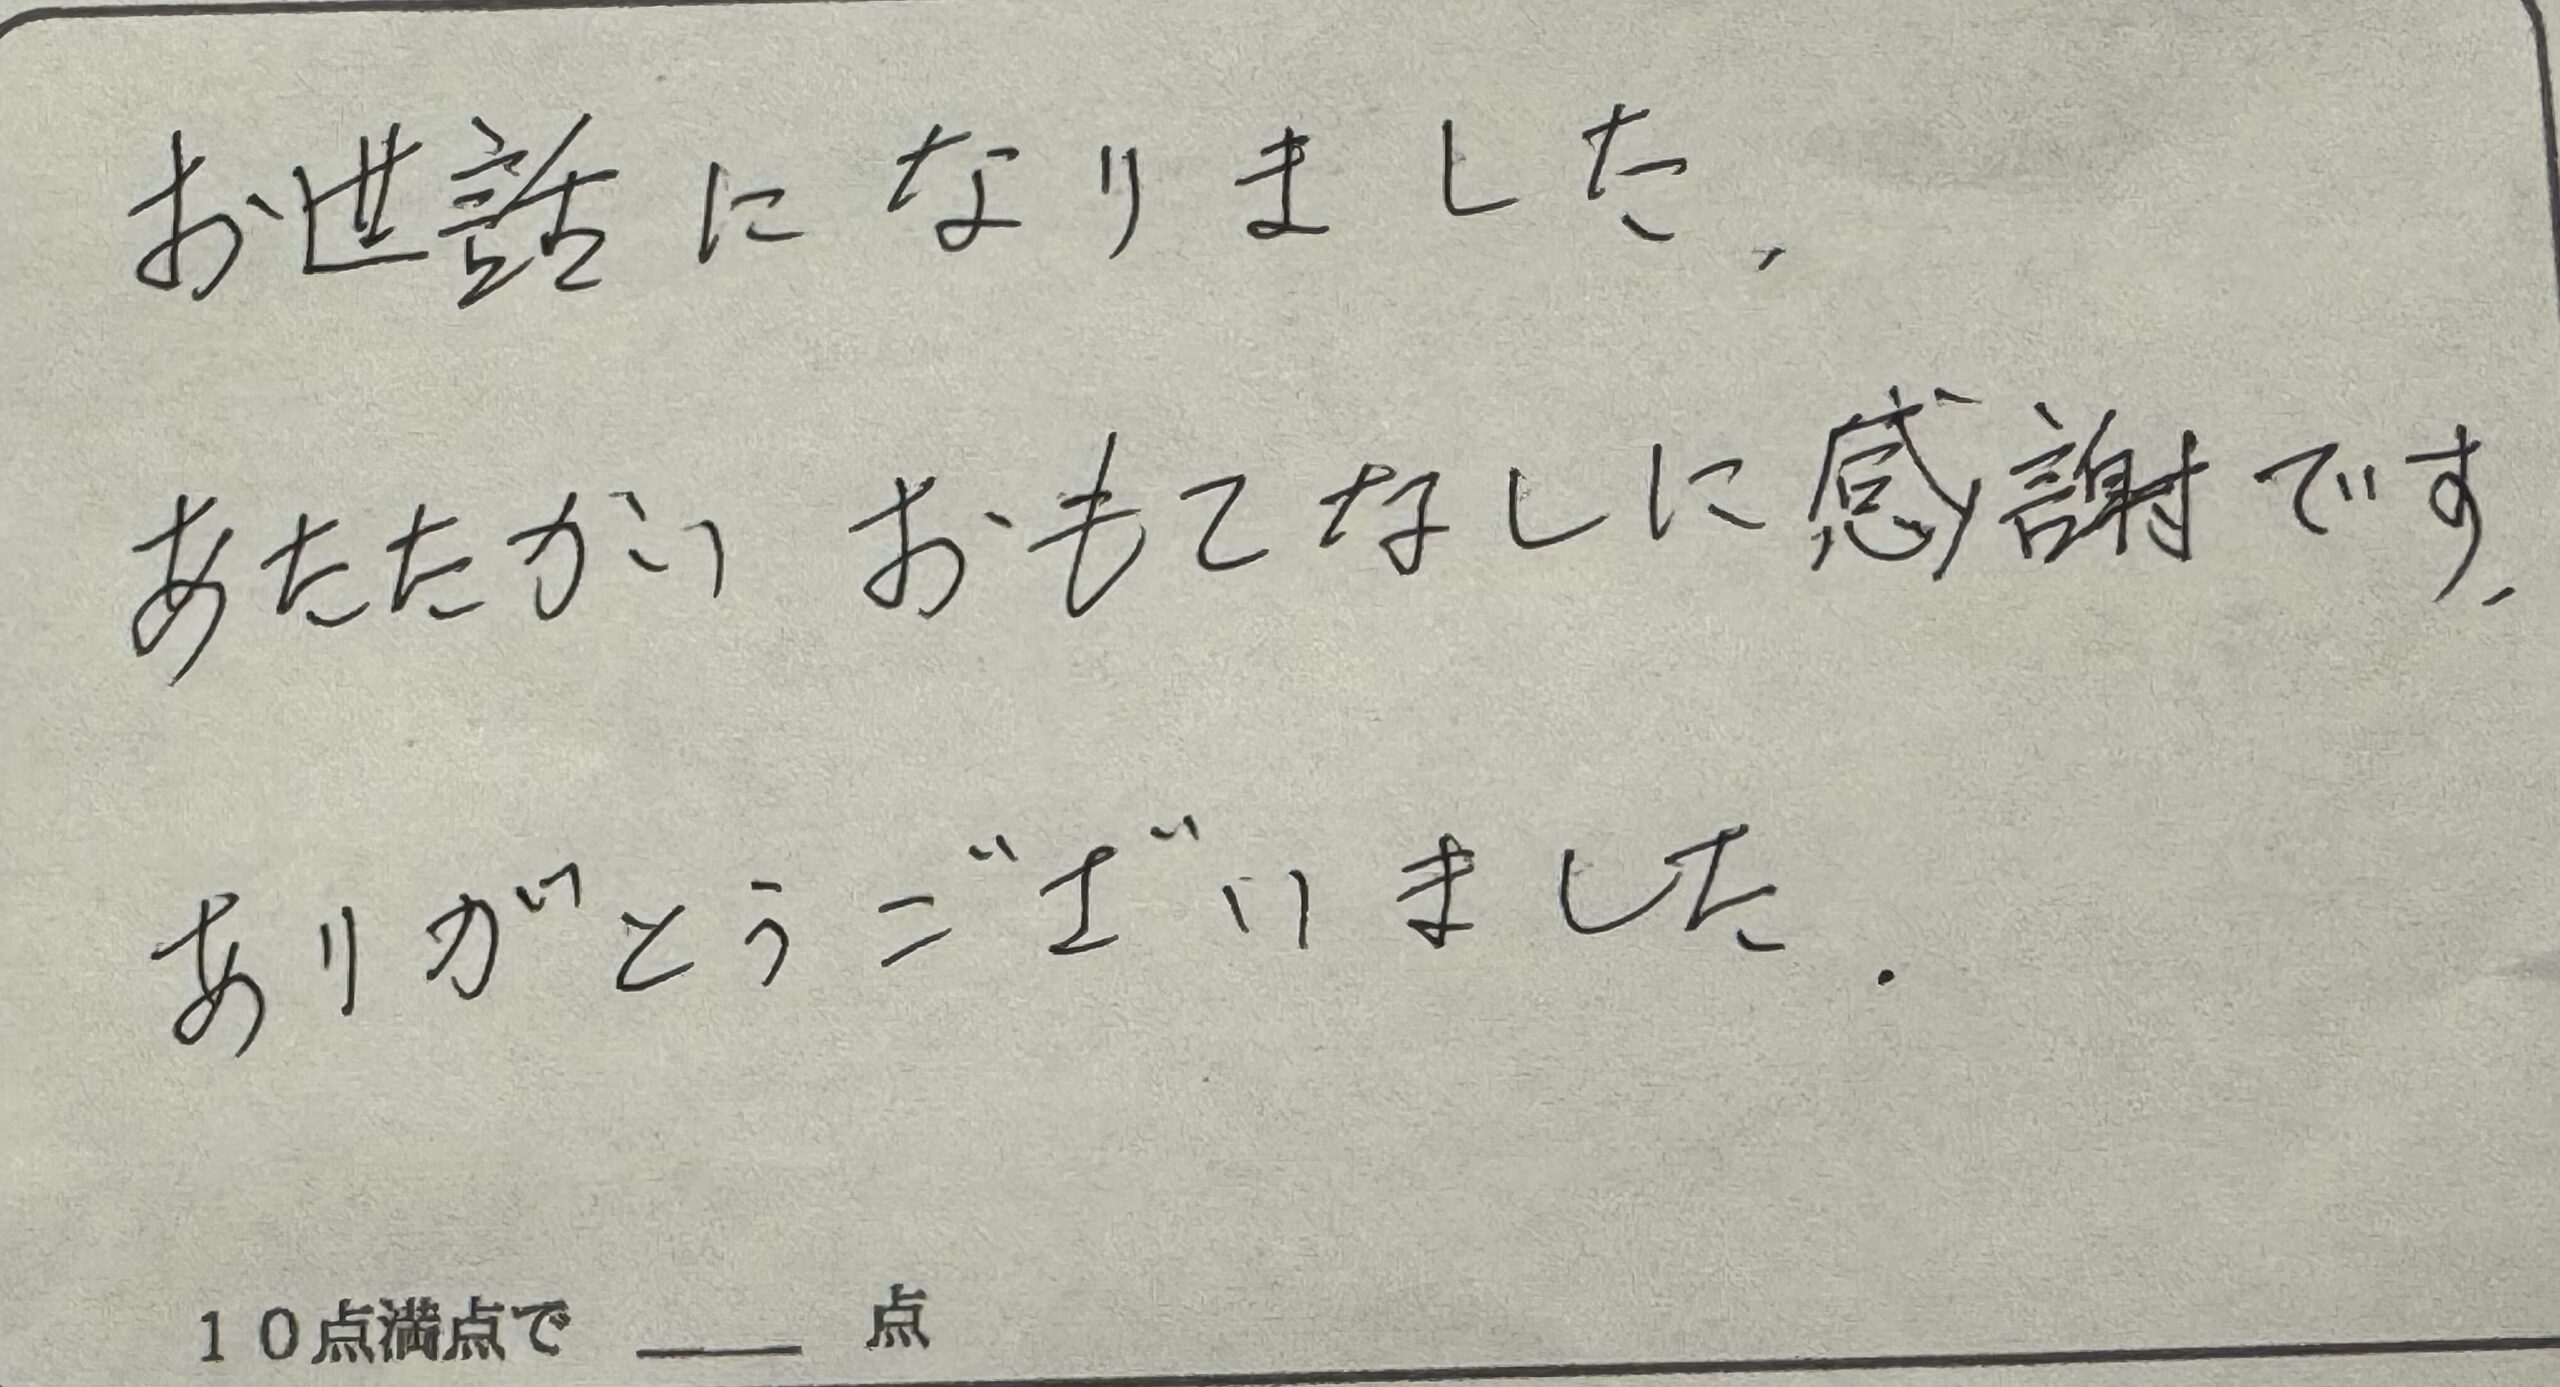 お世話になりました.
あたたかい おもてなしに感謝です.
ありがとうございました.
10点満点で ___ 点